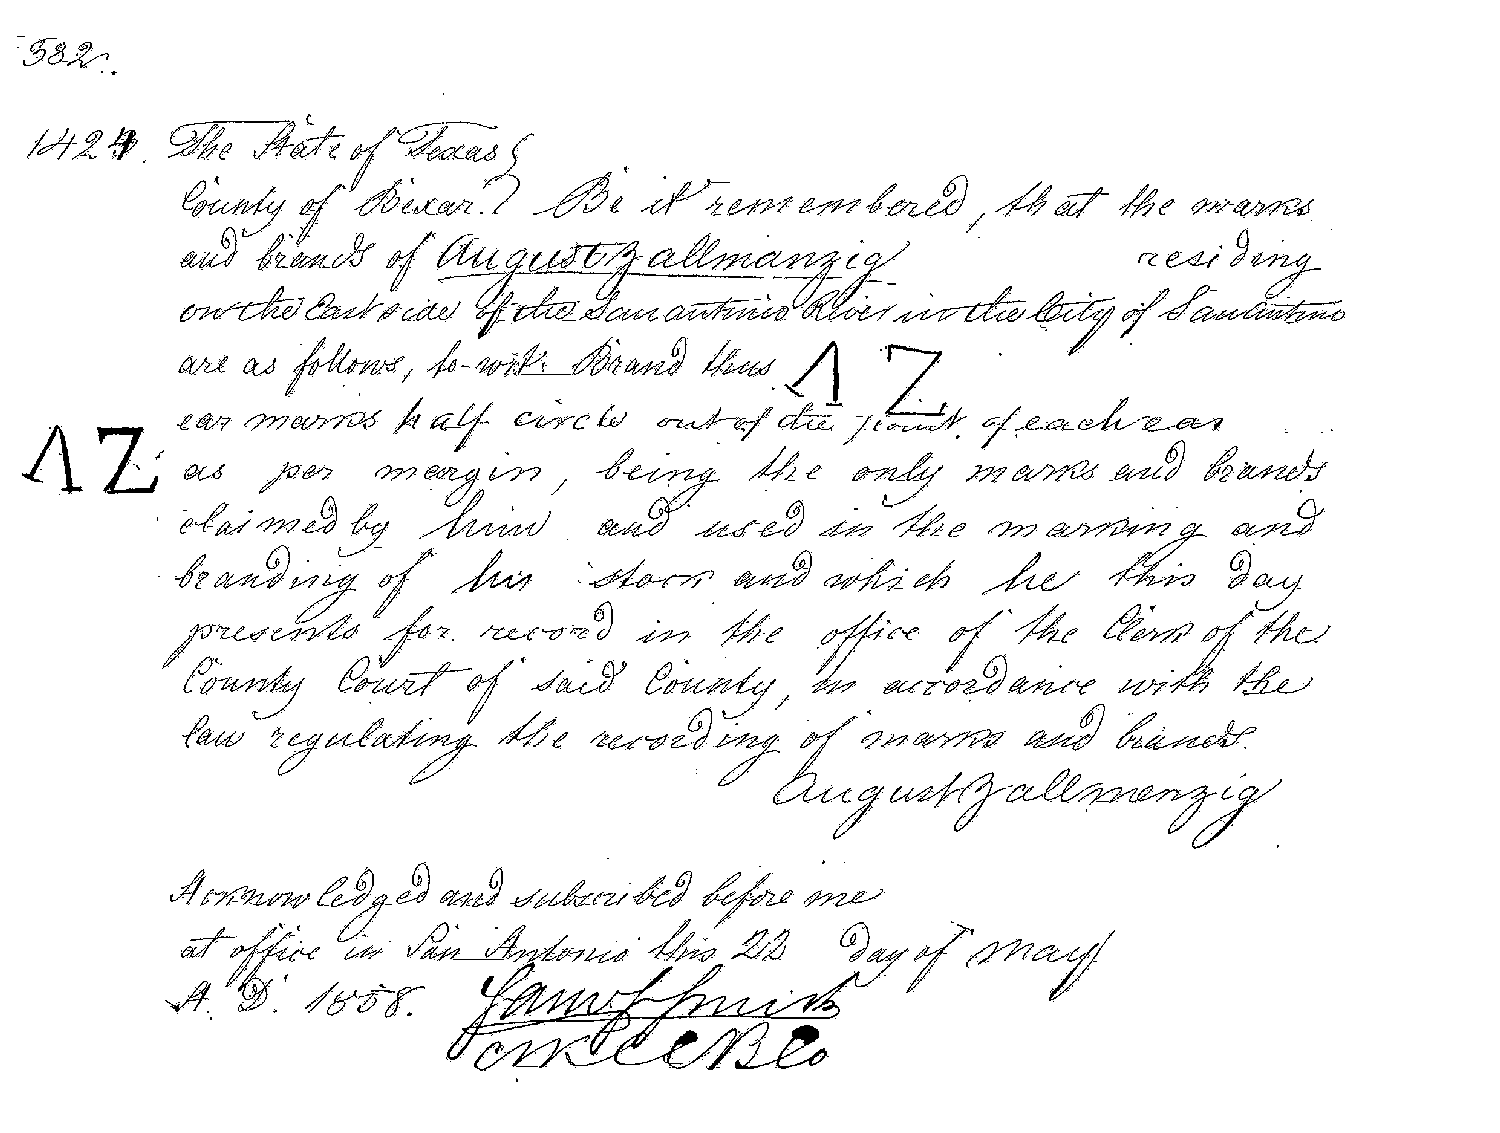 582.
1424. The State of Texas
County of Bexar. Be it remembered, that the marks
and brands of August Zallmanzig residing
on the East side of the Sanantinio River in the City of Sanantino
are as follows, to-wit: Brand thus Λ Z
ear marks half circle out of the point of each ear
Λ Z as per margin, being the only marks and brands
claimed by him and used in the marking and
branding of his stock and which he this day
presents for record in the office of the Clerk of the
County Court of said County, in accordance with the
law regulating the recording of marks and brands.
August Zallmenzig
Acknowledged and subscribed before me
at office in San Antonio this 22 day of May
A. D. 1858. Sam S Smith
Clk C C B Co